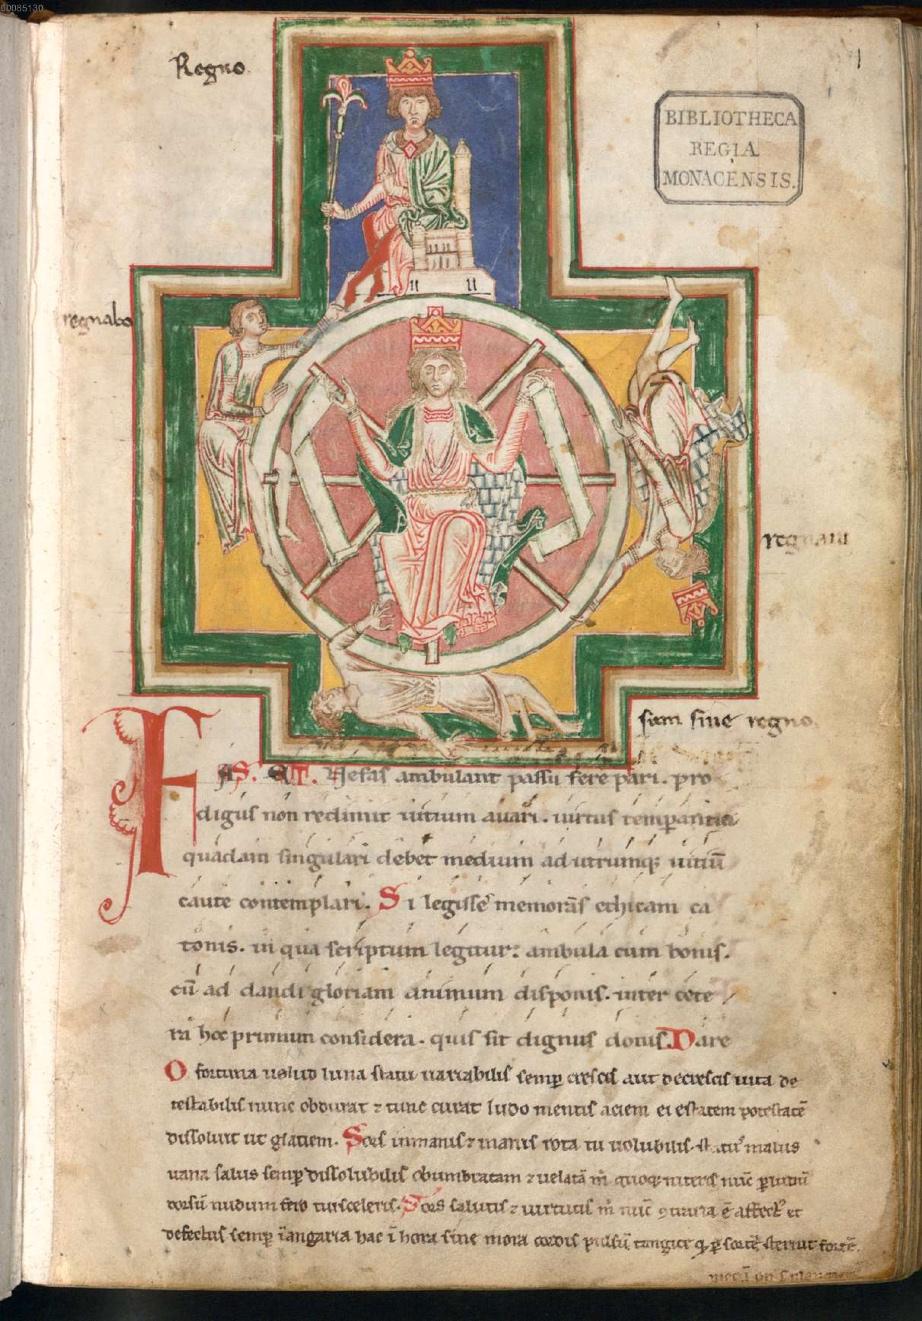 00085130
Regno.
BIBLIOTHECA
REGIA
MONACENSIS.
regnabo
regnaui
sum sine regno
FAS. ET. Nefas ambulant passu fere pari. pro
digus non redimit uitium auari. uirtus temperantia
quadam singulari debet medium ad utrumq; uitiū
caute contemplari. Si legisse memoras ethicam ca
tonis. in qua scriptum legitur: ambula cum bonis.
cū ad dandi gloriam animum disponis. inter cete
ra hoc primum considera. quis sit dignus donis. Dare
O fortuna uelud luna statu uariabilis semp crescis aut decrescis uita de
testabilis nunc obdurat ⁊ tunc curat ludo mentis aciem egestatem potestatē
dissoluit ut glatiem. Sors inmanis ⁊ inanis rota tu uolubilis status malus
uana salus semp dissolubilis obumbratam ⁊ uelatā m̄ quoq; niteris nūc p ludū
dorsū nudum fero tui sceleris. Sors salutis ⁊ uirtutis m̄ nūc ꝯtraria ē affect⁹ et
defectus semp ī angaria hac ī hora sine mora cordis pulsū tangite q̄ p sortē sternit fortē